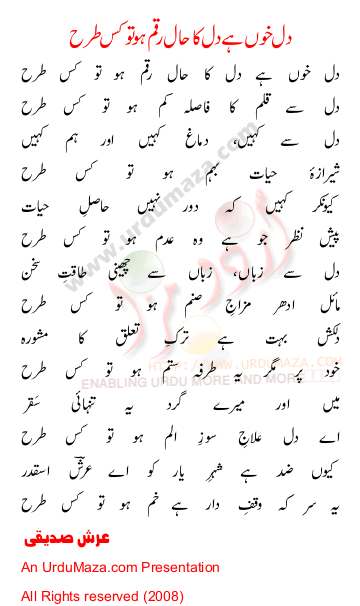 دل خوں ہے دل کا حال رقم ہو تو کس طرح
دل خوں ہے دل کا حال رقم ہو تو کس طرح
دل سے قلم کا فاصلہ کم ہو تو کس طرح
دل سے کہیں، دماغ کہیں اور ہم کہیں
شیرازۂ حیات بہم ہو تو کس طرح
کیونکر کہیں کہ دور نہیں حاصلِ حیات
پیشِ نظر جو ہے وہ عدم ہو تو کس طرح
دل سے زباں، زباں سے چھینی طاقتِ سخن
مائل ادھر مزاجِ صنم ہو تو کس طرح
دلکش بہت ہے ترکِ تعلق کا مشورہ
خود پر مگر یہ طرفہ ستم ہو تو کس طرح
میں اور میرے گرد یہ تنہائی سَقر
اے دل علاجِ سوزِ الم ہو تو کس طرح
کیوں ضد ہے شہرِ یار کو اے عرشؔ اسقدر
یہ سر کہ وقفِ دار ہے خم ہو تو کس طرح
عرش صدیقی
An UrduMaza.com Presentation
All Rights reserved (2008)
www.urdumaza.com
اُردو مزا
HTTP://WWW.URDUMAZA.COM
ENABLING URDU MORE AND MORE